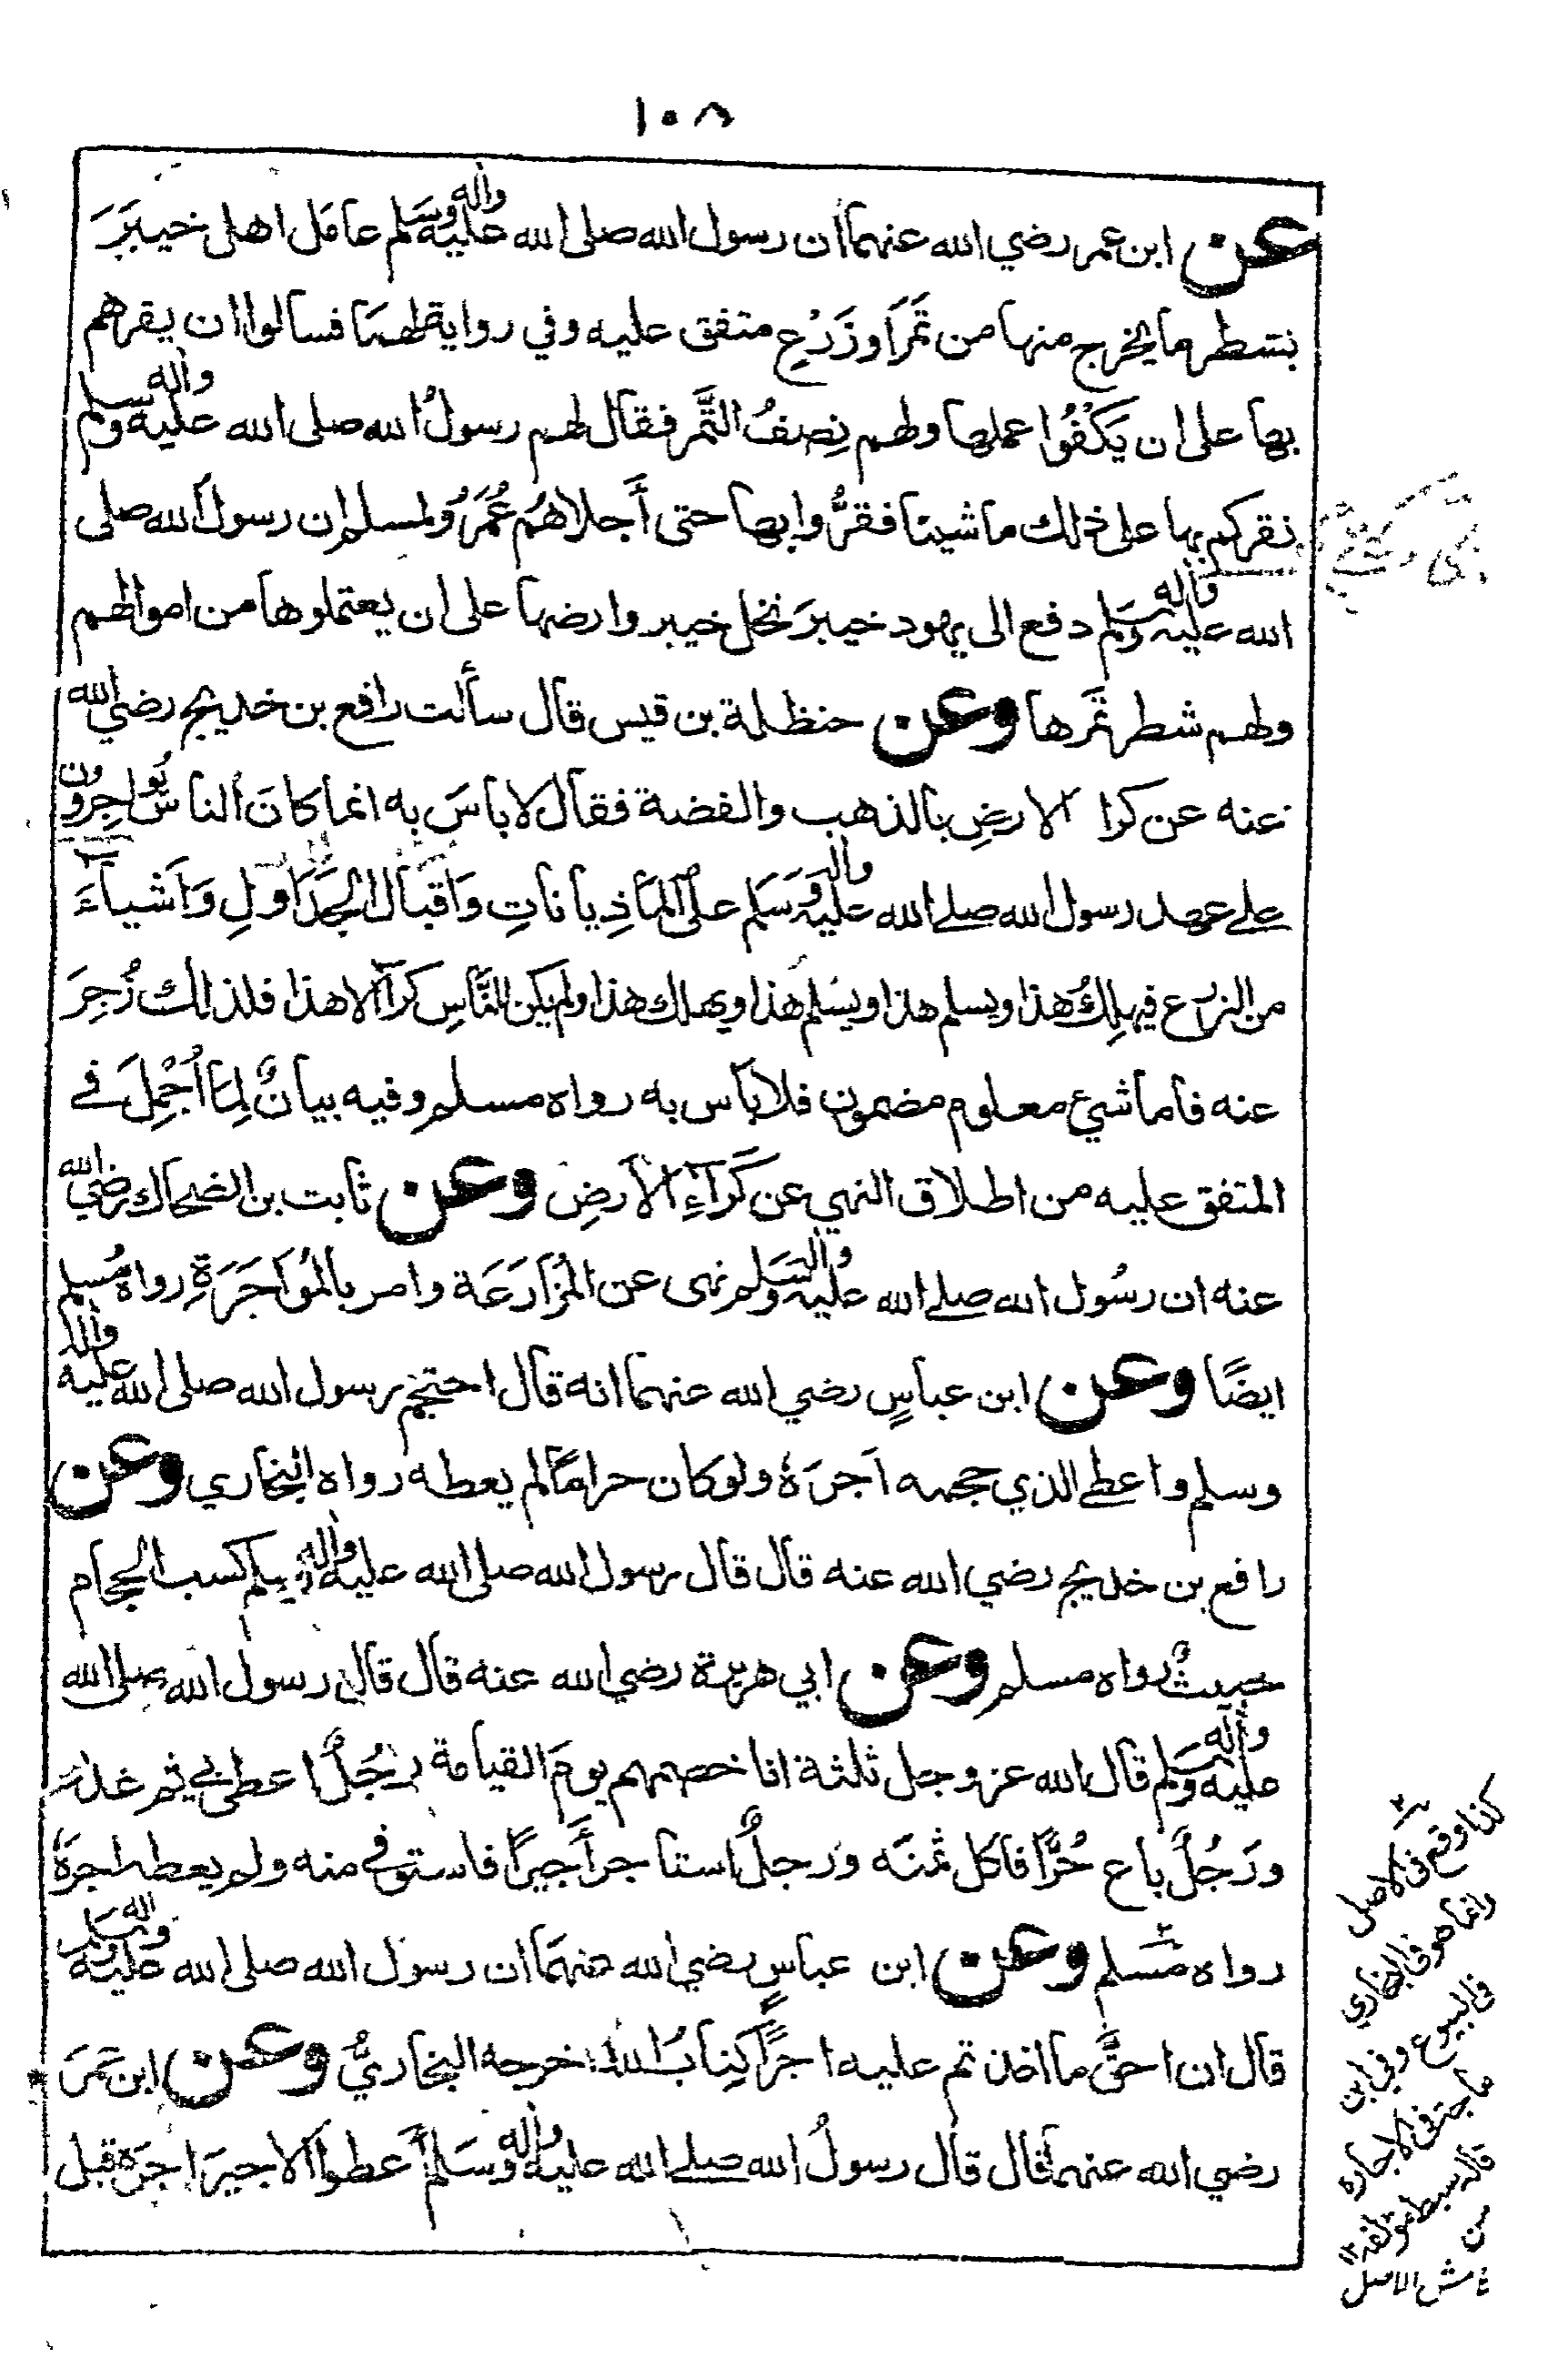 ١٠٨
عن ابن عمر رضي الله عنهما أن رسول الله صلى الله عليه وآله وسلم عامل اهل خيبَرَ
بشطر ما يخرج منها من ثمَرٍ أوزَرْعٍ متفق عليه وفي رواية لهما فسالوا ان يقرهم
بها على ان يَكْفُوا عملها ولهم نِصفُ الثَّمر فقال لهم رسولُ الله صلى الله عليه وآله وسلم
نقركم بها على ذلك ما شينا فقرُّوا بها حتى أَجلاهُم عُمَرُ ولمسلم ان رسول الله صلى
الله عليه وآله وسلم دفع الى يهود خيبرَ نخل خيبر وارضها على ان يعتملوها من اموالهم
ولهم شطر ثمَرها وعن حنظلة بن قيس قال سألت رافع بن خديج رضي الله
عنه عن كرا الارضِ بالذهب والفضة فقال لاباسَ به انما كانَ الناسُ يُواجِرُون
على عهد رسول الله صلى الله عليه وآله وسَلم على المَاذِيانَاتِ وَاَقبال الجَدَاولِ وَاَشياءَ
من الزرع فيهلِكُ هذا ويسلم هذا ويسْلم هذا ويهلك هذا ولم يكن للنَّاسِ كراٌ الا هذا فلذالك زُجِرَ
عنه فاما شيئ معلوم مضمون فلا بأس به رواه مسلم وفيه بيانٌ لِمَا اُجْمِلَ في
المتفق عليه من اطلاق النهي عن كَرَآءِ الاَرضِ وعن ثابت بن الضحاك رضي الله
عنه ان رسُول الله صلى الله عليه وآله وسَلم نهى عن المُزَارَعَة وامر بالمُوَاجَرَةِ رواه مُسلم
ايضًا وعن ابن عباسٍ رضي الله عنهما انه قال احتجم رسول الله صلى الله عليه وآله
وسلم واعطى الذي حجمه اَجرَهُ ولوكان حراماً لم يعطه رواه البخاري وعن
رافع بن خديج رضي الله عنه قال قال رسول الله صلى الله عليه وآله وسلم كسب الحجام
خبيثٌ رواه مسلم وعن ابي هريرة رضي الله عنه قال قال رسول الله صلى الله
عليه وآله وسلم قال الله عز وجل ثلثة انا خصمهم يومَ القيامة رجُلٌ اعطى بي ثم غدرَ
ورَجُلٌ باع حُرًّا فاكل ثمنَه ورجلٌ استاجر أَجيرًا فاستوفى منه ولم يعطه اجرَهُ
رواه مُسلم وعن ابن عباسٍ رضي الله عنهما ان رسول الله صلى الله عليه وآله وسلم
قال ان احقَّ ما اخذتم عليه اجرًا كِتابُ الله اخرجه البخاريُّ وعن ابن عمَرَ
رضي الله عنهما قال قال رسولُ الله صلى الله عليه وآله وسَلم أَعطوا الاجيرَ اجرَهُ قبل
كذا وقع في الاصل
وانما هو في البخاري
في البيوع وفي ابن
ماجة في الاجاره
قاله سبط مؤلفه ١٢
من
هامش الاصل